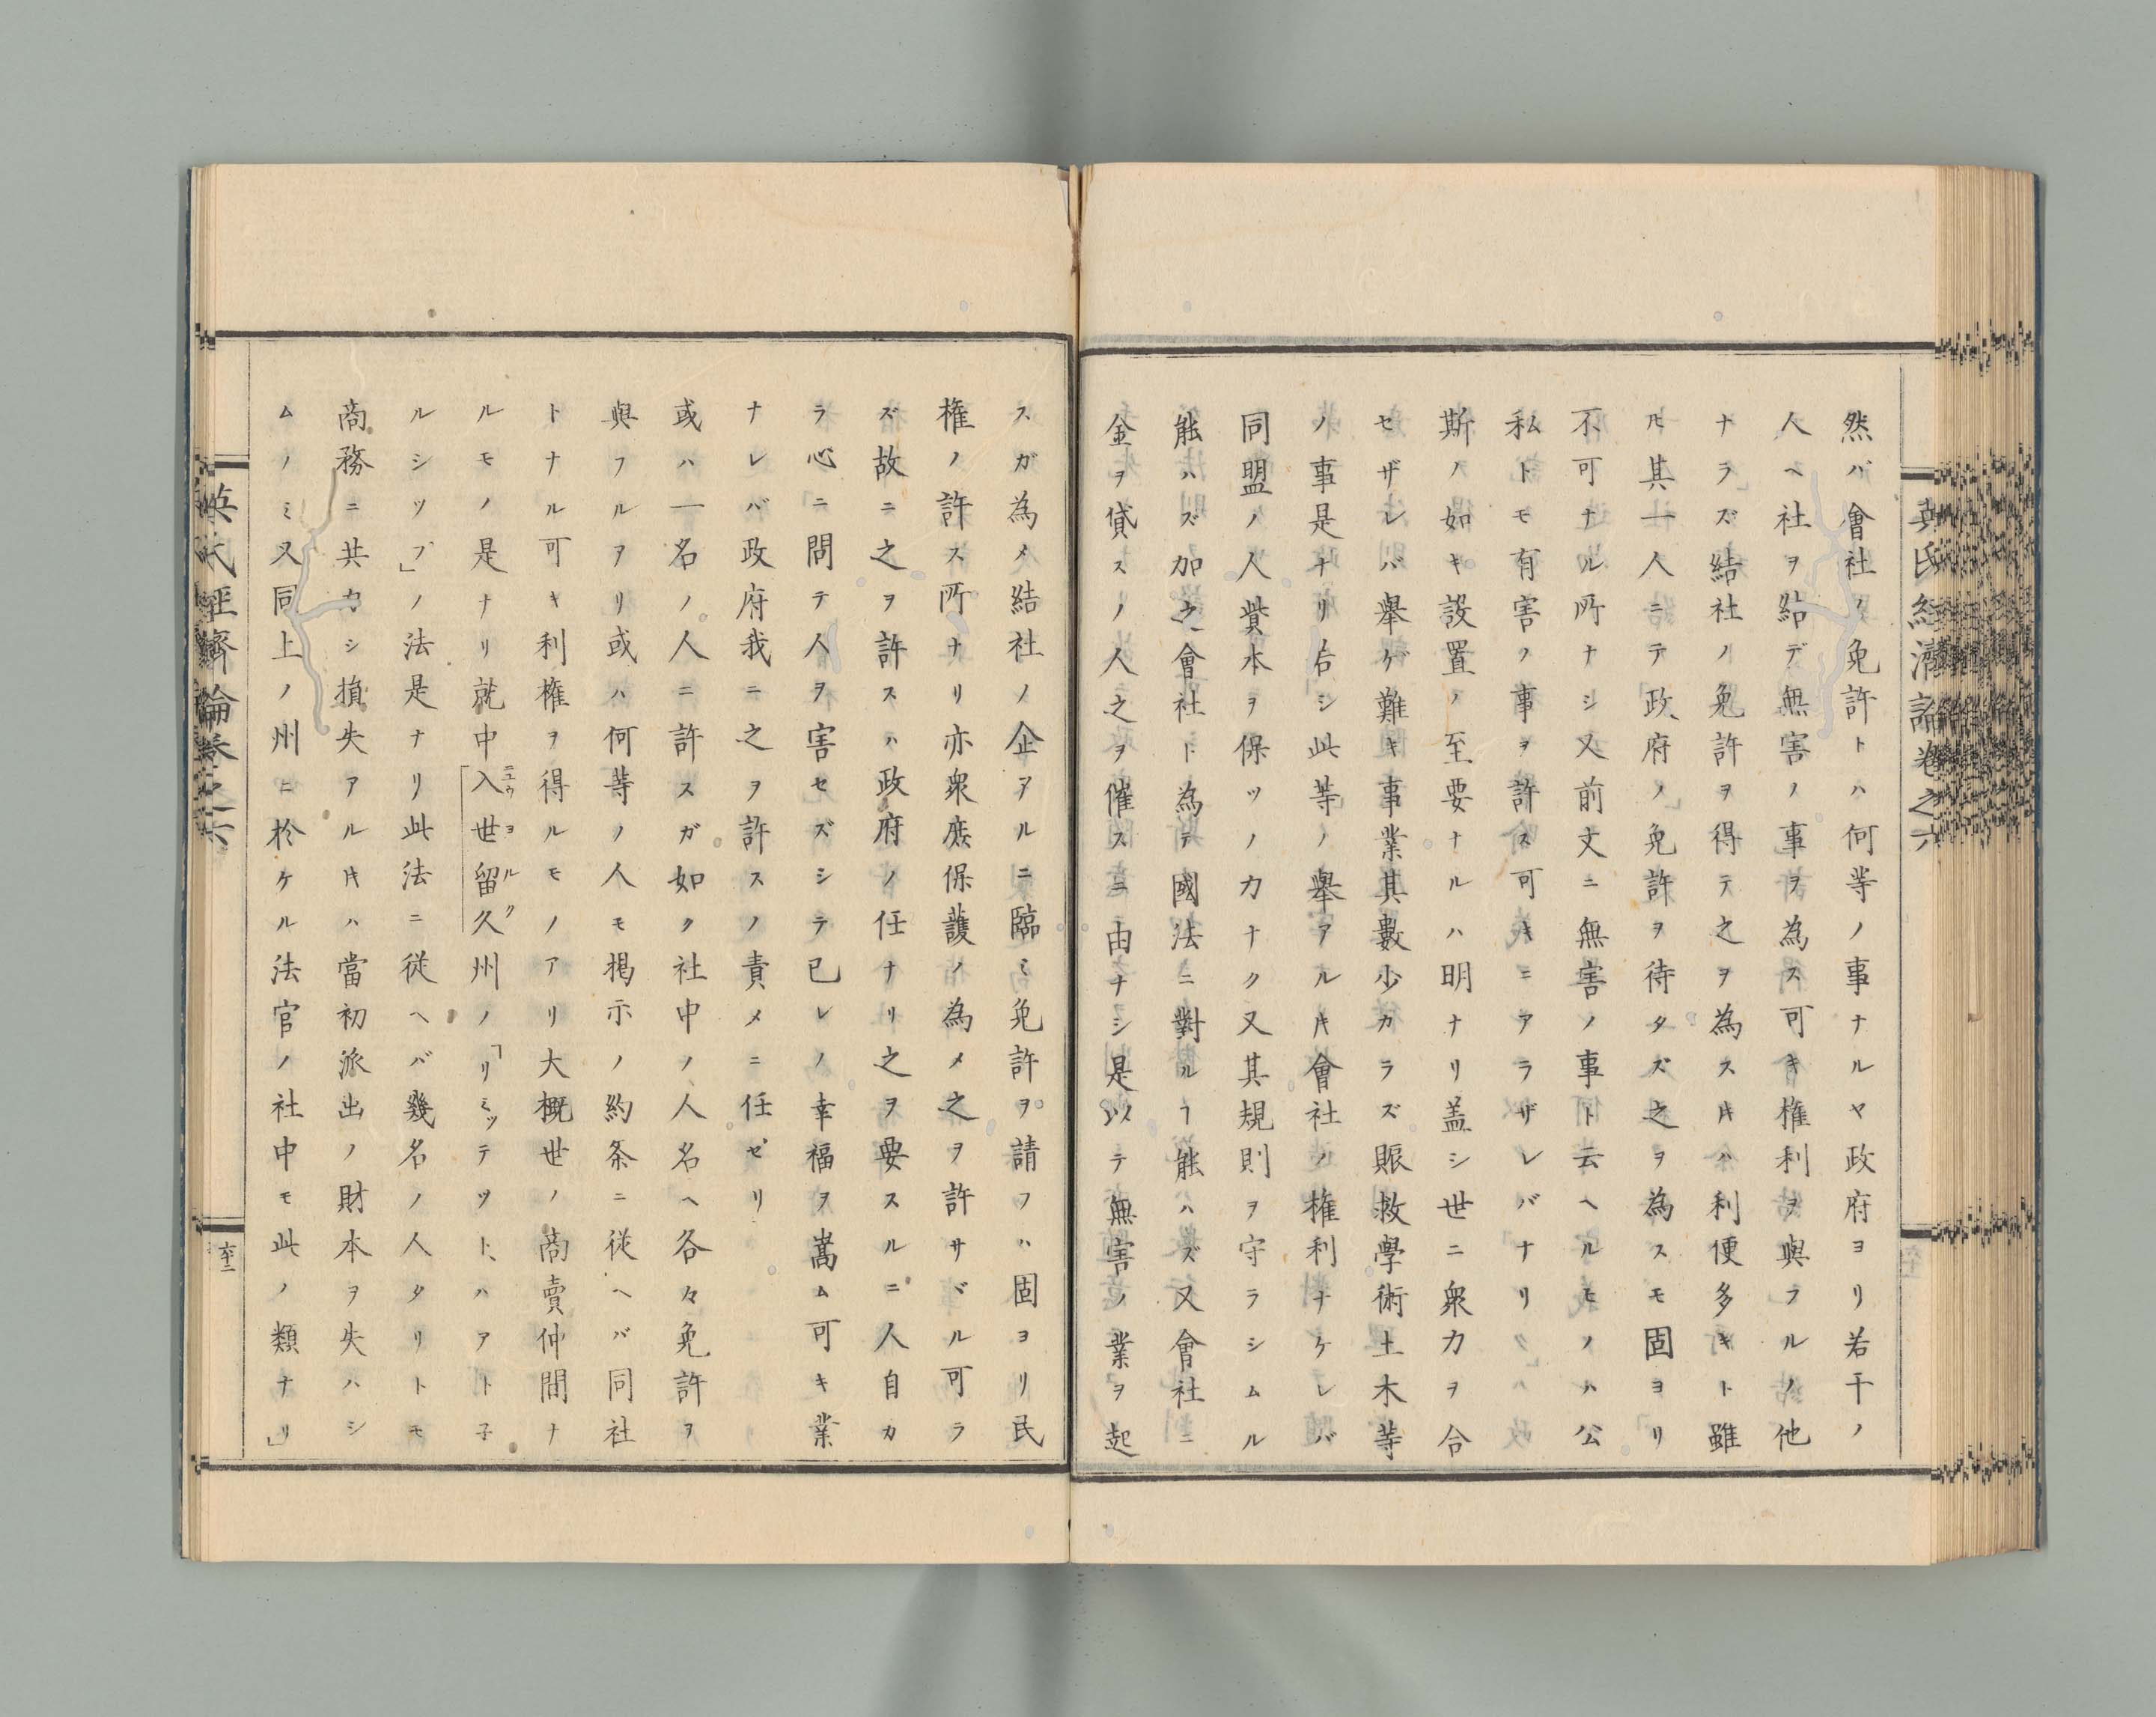 然バ會社ノ免許トハ何等ノ事ナルヤ政府ヨリ若干ノ
人ヘ社ヲ結デ無害ノ事ヲ為ス可キ権利ヲ與ラルノ他
ナラズ結社ノ免許ヲ得テ之ヲ為スキハ利便多キト雖
𪜈其一人ニテ政府ノ免許ヲ待タズ之ヲ為スモ固ヨリ
不可ナル所ナシ又前文ニ無害ノ事ト云ヘルモノハ公
私トモ有害ノ事ヲ許ス可キニアラザレバナリ
斯ノ如キ設置ノ至要ナルハ明ナリ盖シ世ニ衆力ヲ合
セザレバ舉ゲ難キ事業其數少カラズ賑救學術土木等
ノ事是ナリ若シ此等ノ舉アルキ會社ノ権利ナケレバ
同盟ノ人貲本ヲ保ツノ力ナク又其規則ヲ守ラシムル
能ハズ加之會社ト為テ國法ニ對ルヿ能ハズ又會社ニ
金ヲ貸スノ人之ヲ催スニ由ナシ是以テ無害ノ業ヲ起
スガ為メ結社ノ企アルニ臨ミ免許ヲ請フハ固ヨリ民
権ノ許ス所ナリ亦衆庶保護ノ為メ之ヲ許サヾル可ラ
ズ故ニ之ヲ許スハ政府ノ任ナリ之ヲ要スルニ人自カ
ラ心ニ問テ人ヲ害セズシテ已レノ幸福ヲ嵩ム可キ業
ナレバ政府我ニ之ヲ許スノ責メニ任ゼリ
或ハ一名ノ人ニ許スガ如ク社中ノ人名ヘ各々免許ヲ
與フルアリ或ハ何等ノ人モ掲示ノ約条ニ従ヘバ同社
トナル可キ利権ヲ得ルモノアリ大概世ノ商賣仲間ナ
ルモノ是ナリ就中入世留久州ノ「リミッテツト、ハアト子
ルシツプ」ノ法是ナリ此法ニ従ヘバ幾名ノ人タリトモ
商務ニ共力シ損失アルキハ當初派出ノ財本ヲ失ハシ
ムノミ又同上ノ州ニ於ケル法官ノ社中モ此ノ類ナリ」
英氏経濟論巻之六